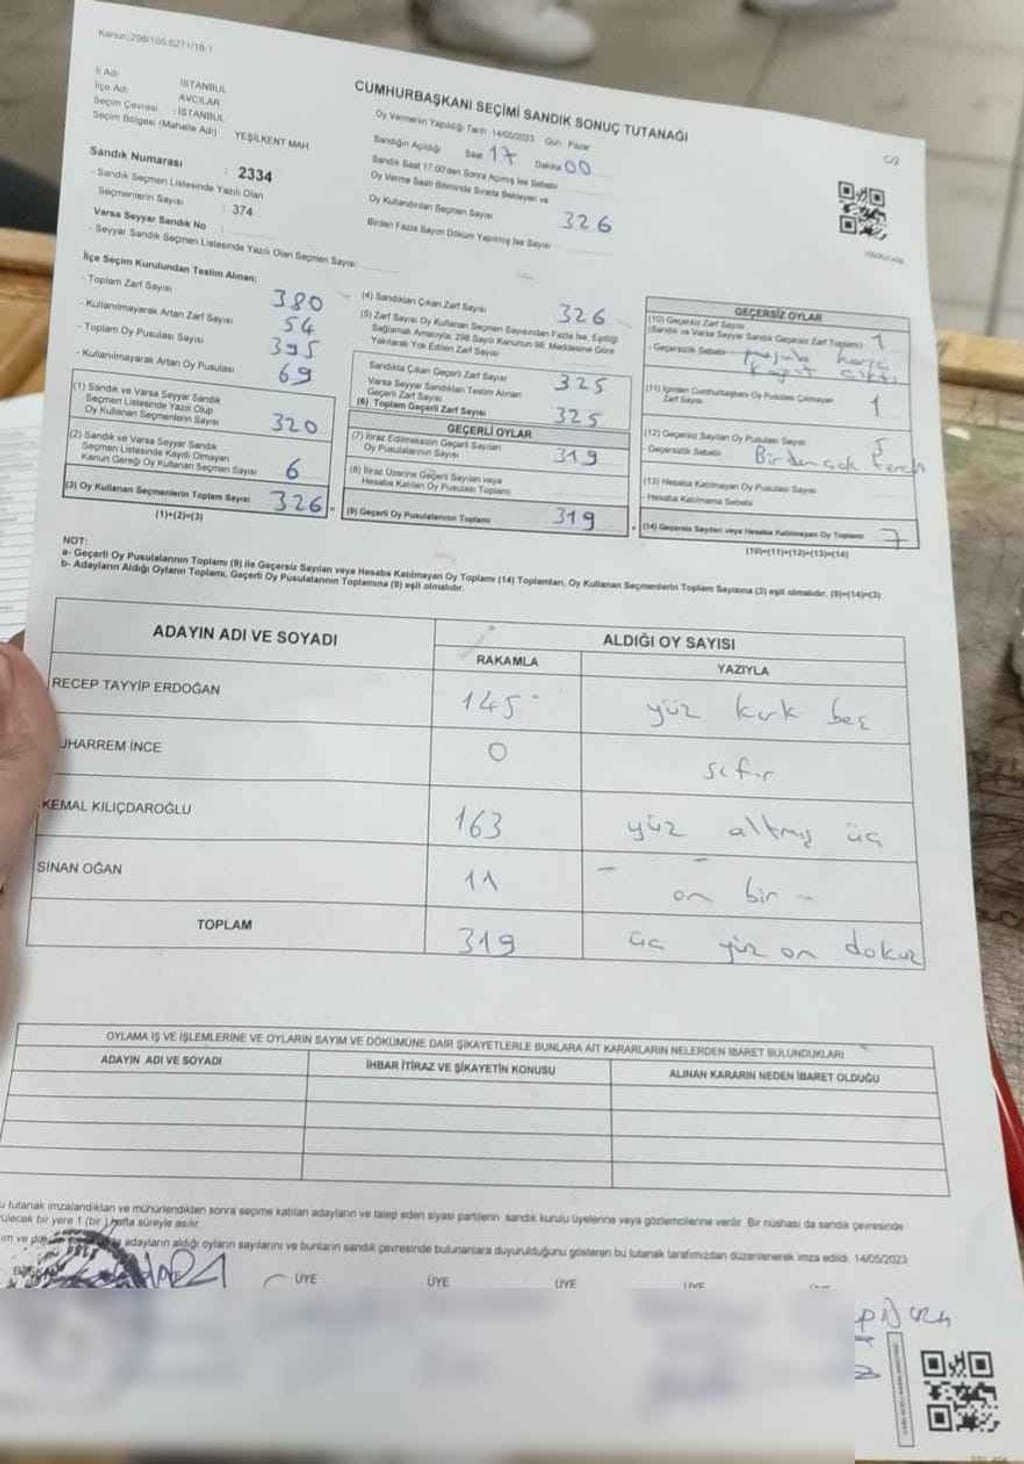 Kanun:298/105,6271/18/1
İl Adı : İSTANBUL
İlçe Adı : AVCILAR
Seçim Çevresi : İSTANBUL
Seçim Bölgesi (Mahalle Adı) YEŞİLKENT MAH.
Sandık Numarası : 2334
- Sandık Seçmen Listesinde Yazılı Olan
Seçmenlerin Sayısı : 374
Varsa Seyyar Sandık No :
- Seyyar Sandık Seçmen Listesinde Yazılı Olan Seçmen Sayısı
CUMHURBAŞKANI SEÇİMİ SANDIK SONUÇ TUTANAĞI
Oy Vermenin Yapıldığı Tarih 14/05/2023 Gün Pazar
Sandığın Açıldığı Saat 17 Dakika 00
Sandık Saat 17.00'den Sonra Açılmış İse Sebebi
Oy Verme Saati Bitiminde Sırada Bekleyen ve
Oy Kullandırılan Seçmen Sayısı 326
Birden Fazla Sayım Döküm Yapılmış İse Sayısı
İlçe Seçim Kurulundan Teslim Alınan:
- Toplam Zarf Sayısı 380
- Kullanılmayarak Artan Zarf Sayısı 54
- Toplam Oy Pusulası Sayısı 395
- Kullanılmayarak Artan Oy Pusulası 69
(1) Sandık ve Varsa Seyyar Sandık
Seçmen Listesinde Yazılı Olup
Oy Kullanan Seçmenlerin Sayısı 320
(2) Sandık ve Varsa Seyyar Sandık
Seçmen Listesinde Kayıtlı Olmayan
Kanun Gereği Oy Kullanan Seçmen Sayısı 6
(3) Oy Kullanan Seçmenlerin Toplam Sayısı 326 =
(1)+(2)=(3)
(4) Sandıktan Çıkan Zarf Sayısı 326
(5) Zarf Sayısı Oy Kullanan Seçmen Sayısından Fazla İse, Eşitliği
Sağlamak Amacıyla, 298 Sayılı Kanunun 98. Maddesine Göre
Yakılarak Yok Edilen Zarf Sayısı
Sandıkta Çıkan Geçerli Zarf Sayısı 325
Varsa Seyyar Sandıktan Teslim Alınan
Geçerli Zarf Sayısı
(6) Toplam Geçerli Zarf Sayısı 325
GEÇERLİ OYLAR
(7) İtiraz Edilmeksizin Geçerli Sayılan
Oy Pusulalarının Sayısı 319
(8) İtiraz Üzerine Geçerli Sayılan veya
Hesaba Katılan Oy Pusulası Toplamı
(9) Geçerli Oy Pusulalarının Toplamı 319
GEÇERSİZ OYLAR
(10) Geçersiz Zarf Sayısı
(Sandık ve Varsa Seyyar Sandık Geçersiz Zarf Toplamı) 1
- Geçersizlik Sebebi
(11) İçinden Cumhurbaşkanı Oy Pusulası Çıkmayan
Zarf Sayısı 1
(12) Geçersiz Sayılan Oy Pusulası Sayısı 5
- Geçersizlik Sebebi Birden çok tercih
(13) Hesaba Katılmayan Oy Pusulası Sayısı
- Hesaba Katılmama Sebebi
(14) Geçersiz Sayılan veya Hesaba Katılmayan Oy Toplamı 7
(10)+(11)+(12)+(13)=(14)
NOT:
a- Geçerli Oy Pusulalarının Toplamı (9) ile Geçersiz Sayılan veya Hesaba Katılmayan Oy Toplamı (14) Toplamları, Oy Kullanan Seçmenlerin Toplam Sayısına (3) eşit olmalıdır. (9)+(14)=(3)
b- Adayların Aldığı Oyların Toplamı, Geçerli Oy Pusulalarının Toplamına (9) eşit olmalıdır.
ADAYIN ADI VE SOYADI ALDIĞI OY SAYISI
RAKAMLA YAZIYLA
RECEP TAYYİP ERDOĞAN 145 yüz kırk beş
UHARREM İNCE 0 sıfır
KEMAL KILIÇDAROĞLU 163 yüz altmış üç
SİNAN OĞAN 11 - on bir -
TOPLAM 319 üç yüz on dokuz
OYLAMA İŞ VE İŞLEMLERİNE VE OYLARIN SAYIM VE DÖKÜMÜNE DAİR ŞİKAYETLERLE BUNLARA AİT KARARLARIN NELERDEN İBARET BULUNDUKLARI
ADAYIN ADI VE SOYADI İHBAR İTİRAZ VE ŞİKAYETİN KONUSU ALINAN KARARIN NEDEN İBARET OLDUĞU
u tutanak imzalandıktan ve mühürlendikten sonra seçime katılan adayların ve talep eden siyasi partilerin sandık kurulu üyelerine veya gözlemcilerine verilir. Bir nüshası da sandık çevresinde
ülecek bir yere 1 (bir) hafta süreyle asılır.
adayların aldığı oyların sayılarını ve bunların sandık çevresinde bulunanlara duyurulduğunu gösteren bu tutanak tarafımızdan düzenlenerek imza edildi. 14/05/2023
ÜYE ÜYE ÜYE ÜYE